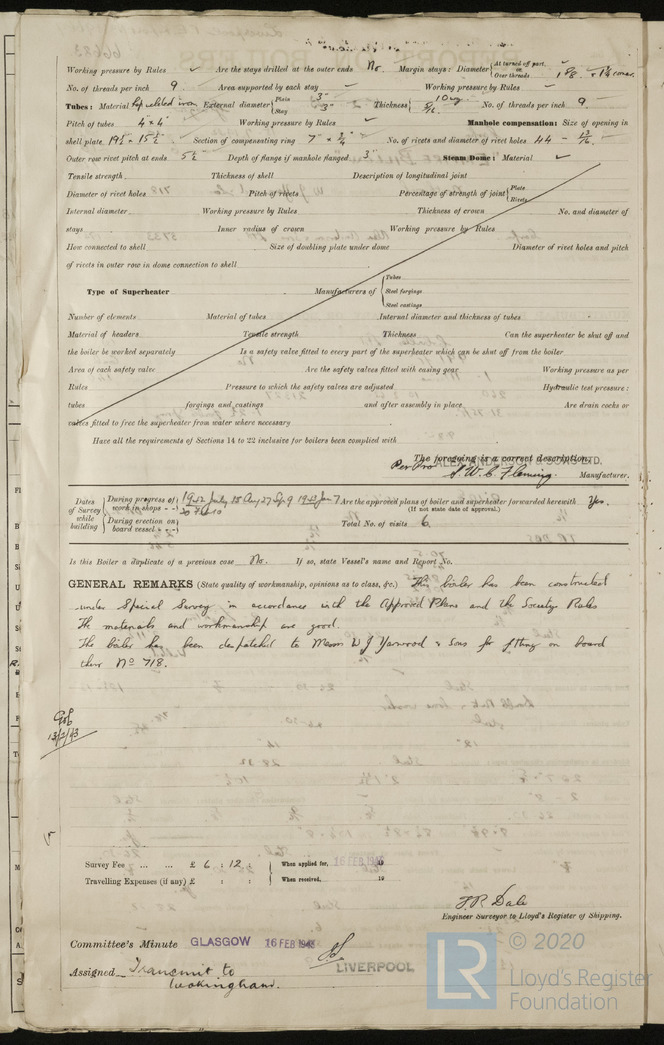 Working pressure by Rules ✓ Are the stays drilled at the outer ends No. Margin stays: Diameter { At turned off part, or Over threads 1⅝
No. of threads per inch 9. Area supported by each stay — Working pressure by Rules —
Tubes: Material Lap welded iron External diameter { Plain 3" Stay 3" Thickness { 10 wg. 5/16 No. of threads per inch 9
Pitch of tubes 4" x 4" Working pressure by Rules ✓ Manhole compensation: Size of opening in
shell plate 19½ x 15½" Section of compensating ring 7" x ¾" No. of rivets and diameter of rivet holes 44 – 13/16"
Outer row rivet pitch at ends 5½" Depth of flange if manhole flanged 3" Steam Dome: Material ✓
Tensile strength Thickness of shell Description of longitudinal joint
Diameter of rivet holes Pitch of rivets Percentage of strength of joint { Plate Rivets
Internal diameter Working pressure by Rules Thickness of crown No. and diameter of
stays Inner radius of crown Working pressure by Rules
How connected to shell Size of doubling plate under dome Diameter of rivet holes and pitch
of rivets in outer row in dome connection to shell
Type of Superheater Manufacturers of { Tubes Steel forgings Steel castings
Number of elements Material of tubes Internal diameter and thickness of tubes
Material of headers Tensile strength Thickness Can the superheater be shut off and
the boiler be worked separately Is a safety valve fitted to every part of the superheater which can be shut off from the boiler
Area of each safety valve Are the safety valves fitted with easing gear Working pressure as per
Rules Pressure to which the safety valves are adjusted Hydraulic test pressure:
tubes forgings and castings and after assembly in place Are drain cocks or
valves fitted to free the superheater from water where necessary
Have all the requirements of Sections 14 to 22 inclusive for boilers been complied with
The foregoing is a correct description,
Per Pro & SONS LTD.
W. C. Fleming. Manufacturer.
Dates of Survey while building { During progress of work in shops - - } 1942 July 15 Aug 27 Sep 9 1943 Jan 7 Are the approved plans of boiler and superheater forwarded herewith Yes.
(If not state date of approval.)
{ During erection on board vessel - - - } Total No. of visits 6.
Is this Boiler a duplicate of a previous case No. If so, state Vessel's name and Report No.
GENERAL REMARKS (State quality of workmanship, opinions as to class, &c.) This boiler has been constructed
under Special Survey in accordance with the Approved Plans and the Societys Rules
The materials and workmanship are good.
The boiler has been despatched to Messrs W J Yarwood & Sons for fitting on board
their No 718.
13/2/43
Survey Fee ... ... £ 6 : 12 : { When applied for, 16 FEB 1943 19
Travelling Expenses (if any) £ : : { When received, 19
F.R. Dale
Engineer Surveyor to Lloyd's Register of Shipping.
Committee's Minute GLASGOW 16 FEB 1943
LIVERPOOL
Assigned Transmit to
Wokingham.
LR © 2020
Lloyd's Register
Foundation